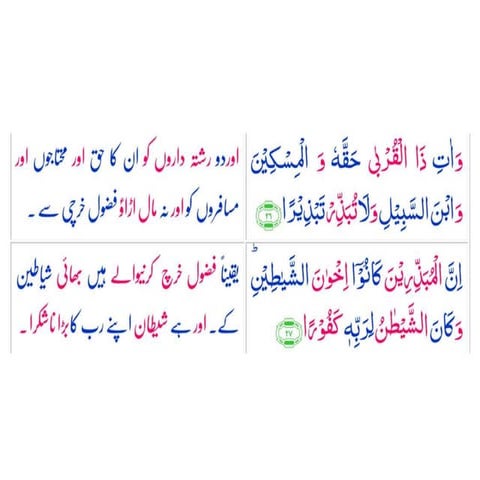 وَاٰتِ ذَا الْقُرْبٰى حَقَّهٗ وَ الْمِسْكِيْنَ
وَابْنَ السَّبِيْلِ وَلَا تُبَذِّرْ تَبْذِيْرًا ﴿۲۶﴾
اور دو رشتہ داروں کو ان کا حق اور محتاجوں اور
مسافروں کو اور نہ مال اڑاؤ فضول خرچی سے۔
اِنَّ الْمُبَذِّرِيْنَ كَانُوْٓا اِخْوَانَ الشَّيٰطِيْنِ ؕ
وَكَانَ الشَّيْطٰنُ لِرَبِّهٖ كَفُوْرًا ﴿۲۷﴾
یقیناً فضول خرچ کرنیوالے ہیں بھائی شیاطین
کے۔ اور ہے شیطان اپنے رب کا بڑا ناشکرا۔